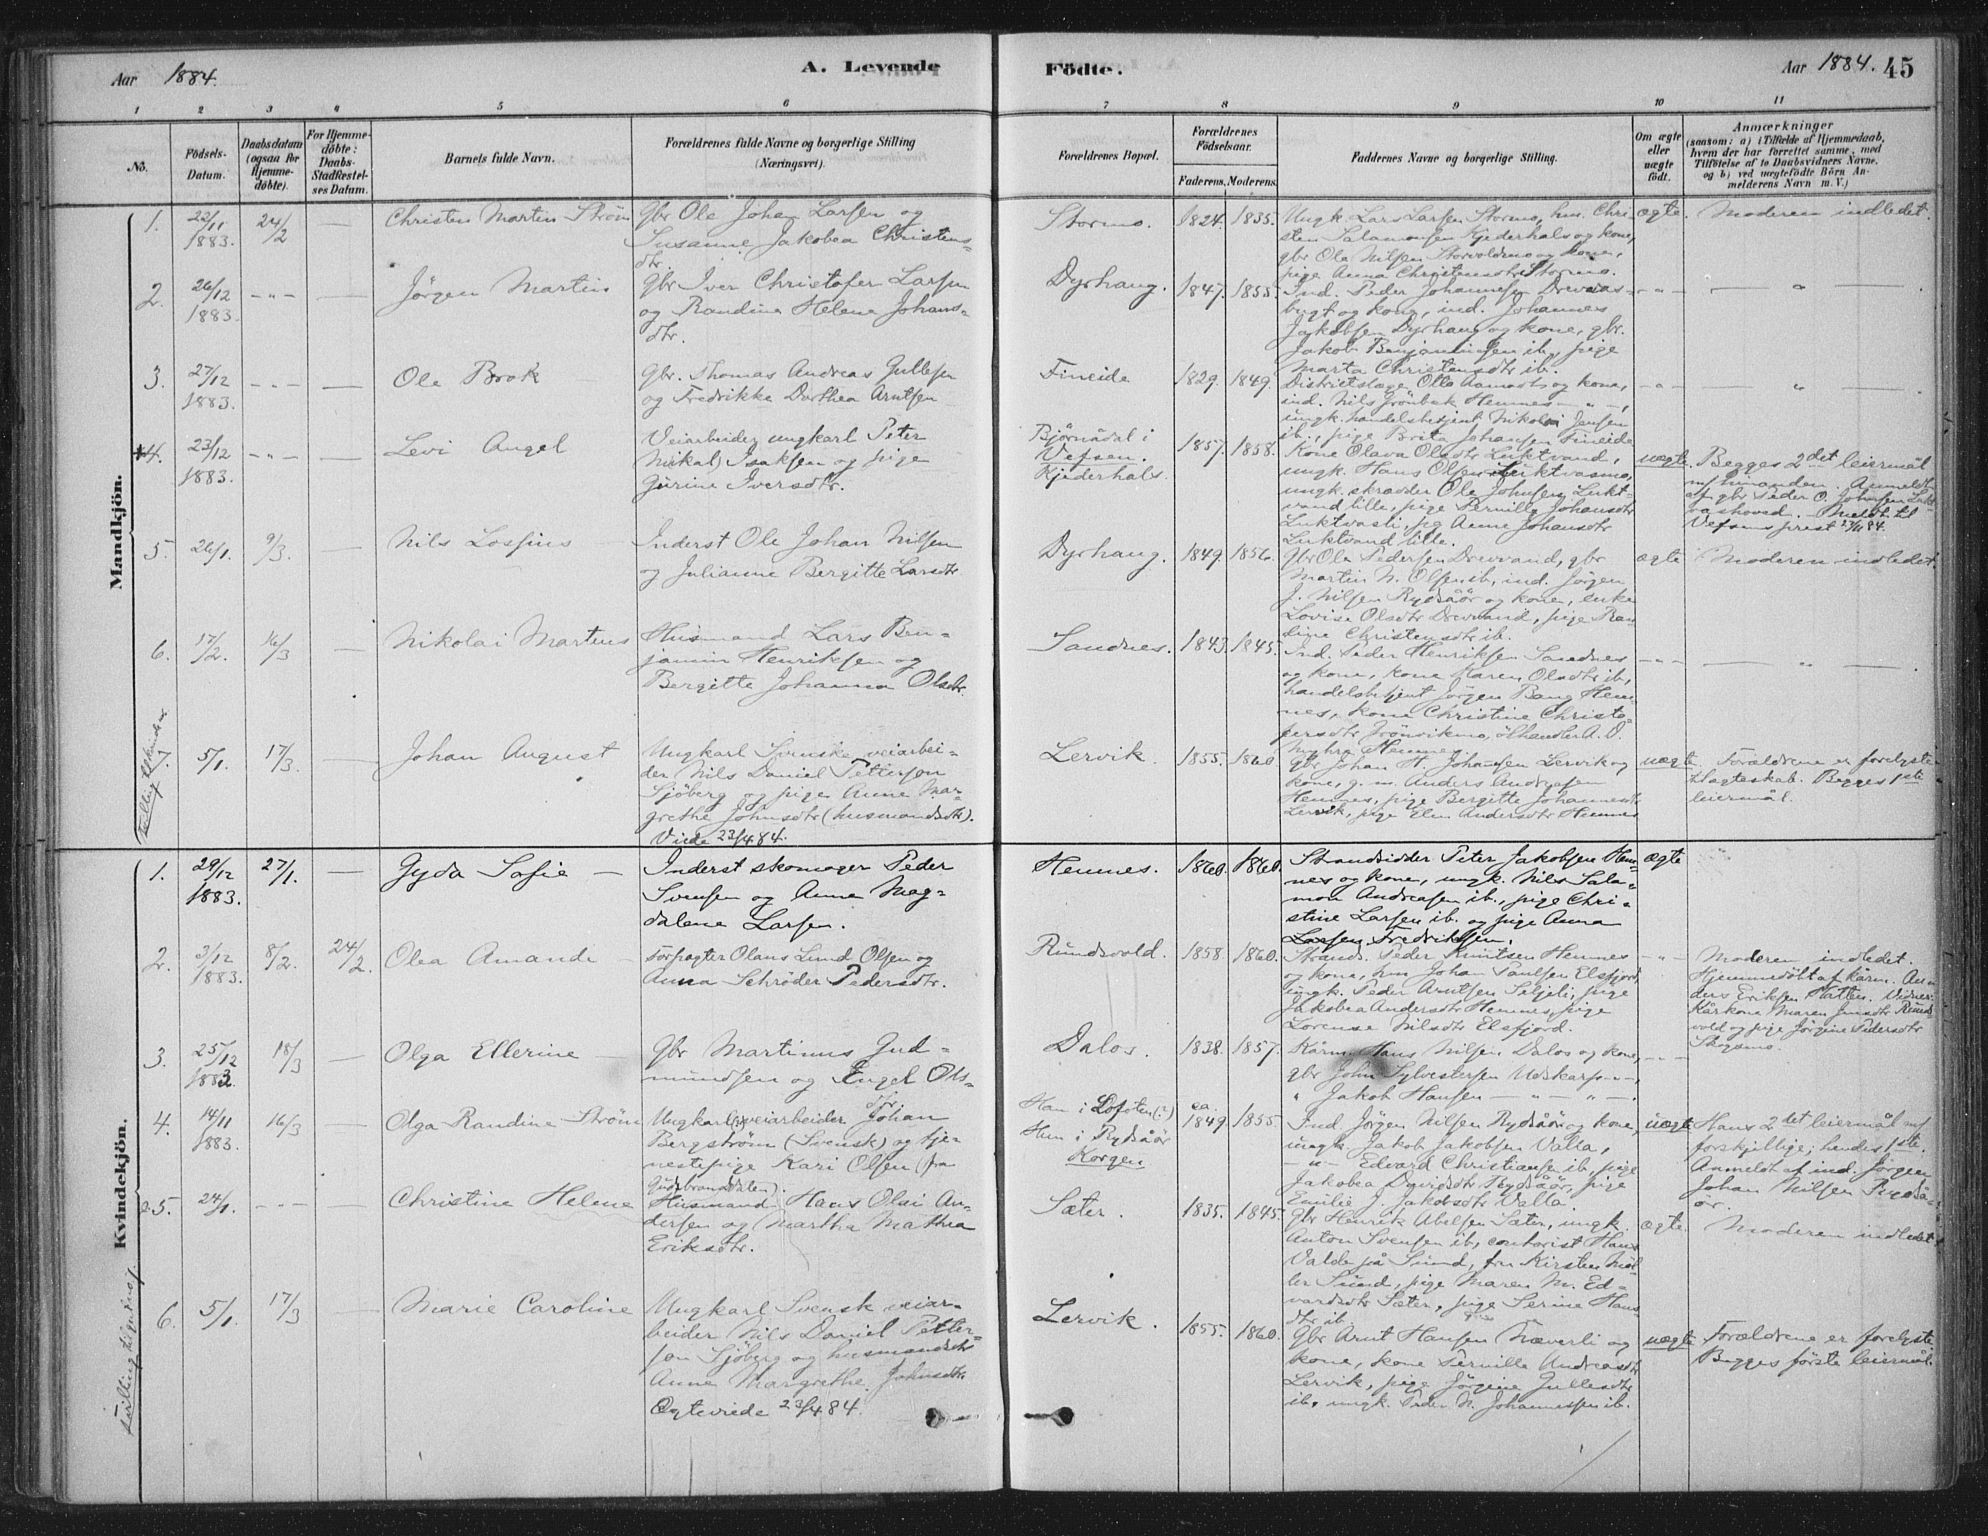 Aar 1884.
A. Levende
Födte.
Aar 1884. 45
1 2 3 4 5 6 7 8 9 10 11
No.
Födsels-
Datum.
Daabsdatum
(ogsaa for
Hjemme-
döbte).
For Hjemme-
döbte:
Daabs-
Stadfæstel-
ses Datum.
Barnets fulde Navn.
Forældrenes fulde Navne og borgerlige Stilling
(Næringsvei).
Forældrenes Bopæl.
Forældrenes
Födselsaar.
Faderens. Moderens.
Faddernes Navne og borgerlige Stilling.
Om ægte
eller
uægte
födt.
Anmærkninger
(saasom: a) i Tilfælde af Hjemmedaab,
hvem der har forrettet samme, med
Tilföielse af to Daabsvidners Navne,
og b) ved uægtefödte Börn An-
melderens Navn m. V.)
Mandkjön.
1. 22/11 1883. 24/2 — Christen Martin Strøm
Gbr Ole Johan Larsen og
Susanne Jakobea Christens-
dtr.
Stormo. 1824. 1835.
Ungk. Lars Larsen Stormo, hm. Chri-
sten Salamonsen Kjederhals og kone,
gbr Ole Nilsen Storvoldmo og kone,
pige Anna Christensdtr Stormo.
ægte. Moderen indledet.
2. 26/12 1883. -"- — Jörgen Martin
Gbr Iver Christofer Larsen
og Randine Helene Johans-
dtr.
Dyrhaug. 1847. 1855.
Ind. Peder Johannesen Drevvas-
bugt og kone, ind. Johannes
Jakobsen Dyrhaug og kone, gbr.
Jakob Benjaminsen ib, pige
Marta Christensdtr ib.
-"- — " —
3. 27/12 1883. -"- — Ole Brok
Gbr. Thomas Andreas Jullesen
og Fredrikke Dorthea Arntsen
Fineide 1829. 1849.
Districtslæge Otto Aanodt og kone,
ind. Nils Grönbæk Hemnes -"-,
ungk. handelsbetjent Nikolai Jensen
ib, pige Brita Johansen Fineide
-"- — " —
4. 23/12 1883. -"- — Levi Angel
Veiarbeider, ungkarl Peter
Mikal Isaksen og pige
Gurine Iversdtr.
Bjørnådal i
Vefsen.
Kjederhals. 1857. 1858.
Kone Olava Olsdtr Luktvand,
ungk. Hans Olsen Luktvasmo,
ungk. skrædder Ole Johnsen Lukt-
vand lille, pige Pernille Johansdtr
Luktvasli, pg Anne Johansdtr
Luktvand lille.
uægte. Begges 2det leiermål
m/hinanden. Anmeldt
af gbr Peder O. Johnsen Lukt-
vashoved. Meldt til
Vefsens prest
5. 26/1. 9/3. — Nils Losius
Inderst Ole Johan Nilsen
og Julianne Bergitte Larsdtr
Dyrhaug. 1849. 1856.
Gbr Ole Pedersen Drevvand, gbr
Martin N. Olsen ib, ind. Jörgen
J. Nilsen Rydsåör og kone, enke
Lovise Olsdtr Drevvand, pige Ran-
dine Christensdtr ib.
ægte Moderen indledet.
6. 17/2. 16/3 — Nikolai Martens
Husmand Lars Ben-
jamin Henriksen og
Bergitte Johanna Olsdtr.
Sandnes. 1843. 1845.
Ind. Peder Henriksen Sandnes
og kone, kone Maren Olsdtr ib,
handelsbetjent Jörgen Bang Hem-
nes, kone Christine Christo-
persdtr Grönvikmo, ölhandler A. O.
Myhra Hemnes.
-"- — " —
7. 5/1. 17/3. — Johan August
Ungkarl Svenske veiarbei-
der Nils Daniel Petterson
Sjöberg og pige Anne Mar-
grethe Johnsdtr (husmandsdtr).
Viede 23/4 84.
Lervik. 1855. 1860
Gbr Johan H. Johansen Lervik og
kone, g.m. Anders Andreasen
Hemnes, pige Bergitte Johannesdtr
Lervik, pige Elen Andersdtr Hemnes
uægte Forældrene er forelyste
til ægteskab. Begges 1ste
leiermål.
Kvindekjön.
1. 29/12 1883. 27/1. — Gyda Sofie —
Inderst skomager Peder
Svensen og Anna Mag-
dalene Larsen.
Hemnes. 1860. 1860.
Strandsidder Peter Jakobsen Hem-
nes og kone, ungk. Nils Sala-
mon Andreasen ib., pige Chri-
stine Larsen ib. og pige Anna
Larsen Fredriksen.
ægte
2. 3/12 1883. 8/2. 24/2. Olea Amanda —
Forpagter Olaus Lund Olsen og
Anna Schröder Pedersdtr.
Rundsvold. 1858. 1860.
Strands. Peder Knutsen Hemnes
og kone, hm Johan Paulsen Elsfjord,
ungk. Peder Arntsen Seljeli, pige
Jakobea Andersdtr Hemnes, pige
Lorense Nilsdtr Elsfjord.
-"- Moderen indledet.
Hjemmedöbt af kårm. An-
ders Eriksen Hatten. Vidner:
Kårkone Maren Jensdtr Runds-
vold og pige Jörgine Pedersdtr
Skogsmo.
3. 25/12 1883. 18/3 — Olga Ellerine
Gbr Martinus Gud-
mundsen og Engel Ols-
dtr
Dalos. 1838. 1857.
Kårm. Hans Nilsen Dalos og kone,
gbr John Sylvestersen Udskarpe -"-,
" Jakob Hansen -"- -"-.
-"-
4. 14/11 1883. 16/3 — Olga Randine Strøm
Ungkarl veiarbeider Johan
Bergström (Svensk) og tje-
nestepige Kari Olsen (fra
Gudbrandsdalen).
Han i Lofoten (?)
Hun i Rydsåör
Korgen
ca. 1849. 1855.
Ind Jörgen Nilsen Rydsåör og kone,
ungk. Jakob Jakobsen Valla,
-"- Edvard Christiansen ib, pige
Jakobea Davidsdtr Rydsåör, pige
Emilie J. Jakobsdtr Valla.
uægte Hans 2det leiermål m/
forskjellige, hendes 1ste.
Anmeldt af ind. Jörgen
Johan Nilsen Rydså-
ör.
5. 24/1. Christine Helene
Husmand Hans Olai An-
dersen og Martha Mathea
Eriksdtr.
Sæter. 1835. 1845.
Gbr Henrik Abelsen Sæter, ungk.
Anton Svensen ib, contorist Hans
Valde på Sund, fru Kirsten Möl-
ler Sund, pige Maren M. Ed-
vardsdtr Sæter, pige Serine Hans-
dtr ib
ægte. Moderen indledet
6. 5/1. 17/3 — Marie Caroline
Ungkarl Svensk veiar-
beider Nils Daniel Petter-
son Sjöberg og husmandsdtr
Anne Margrethe Johnsdtr
Ægteviede 23/4 84.
Lervik. 1855. 1860.
Gbr Arnt Hansen Næverli og
kone, kone Pernille Andreasdtr
Lervik, pige Jörgine Jullesdtr
ib, ungk. Peder N. Johannessen ib.
uægte Forældrene er forelyste
Begges förste leiermål.